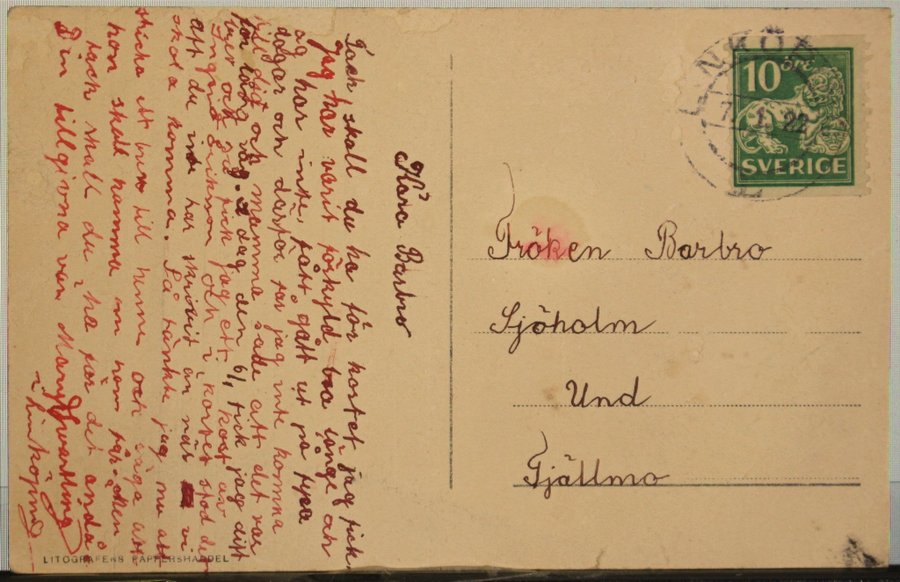 Kära Barbro
Tack skall du ha för kortet jag fick.
Jag har varit förkyld bra länge och
jag har inte fått gått ut på fyra
dagar och därför far jag inte komma
till dig och mamma sade att det var
för lång väg. I dag den 6/1 fick jag ditt
och fick jag ett kort av
Ingrid och i kortet stod det
att du inte har skrivit än när vi
skola komma. Så tänkte jag nu att
skicka ett brev till henne och säga att
hon skall komma om hon får.
tack skall du ha för det ändå
Din tillgivna vän Mary Swartling
i Linköping
LITOGRAFENS PAPPERSHANDEL
10 öre
SVERIGE
Fröken Barbro
Sjöholm
Und
Tjällmo